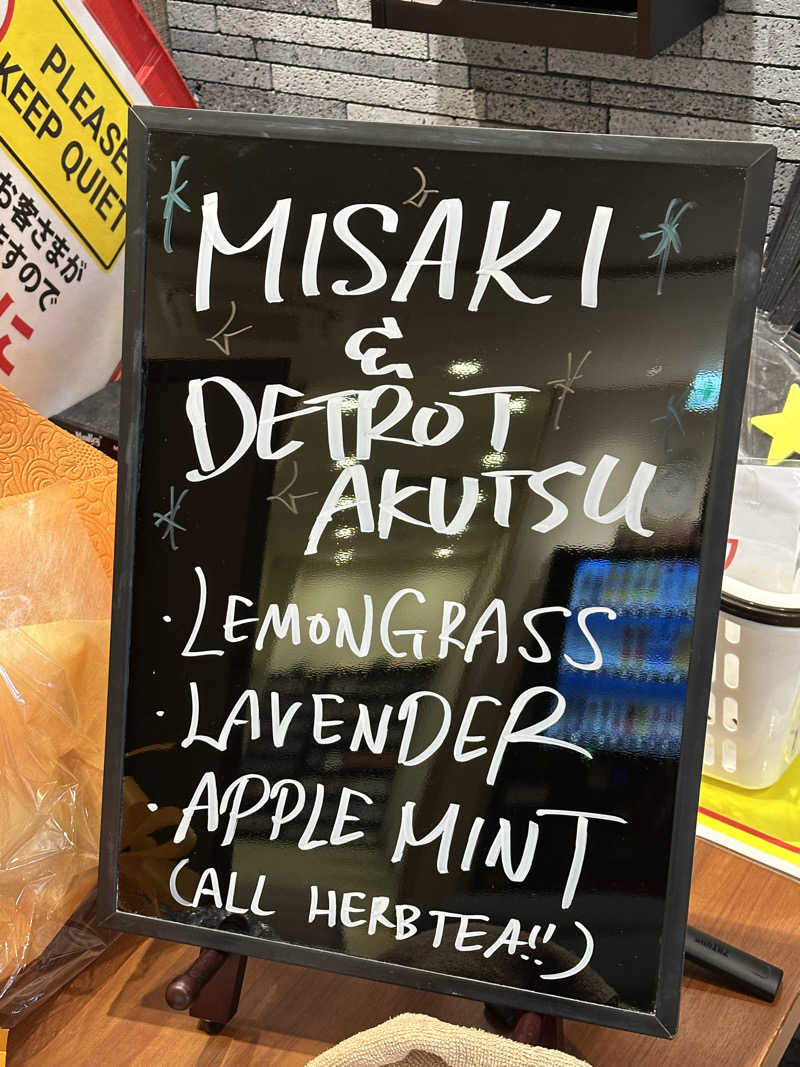 PLEASE
KEEP QUIET
お客さまが
ますので
に
MISAKI
&
DETROT
AKUTSU
・LEMONGRASS
・LAVENDER
・APPLE MINT
(ALL HERB TEA!!)